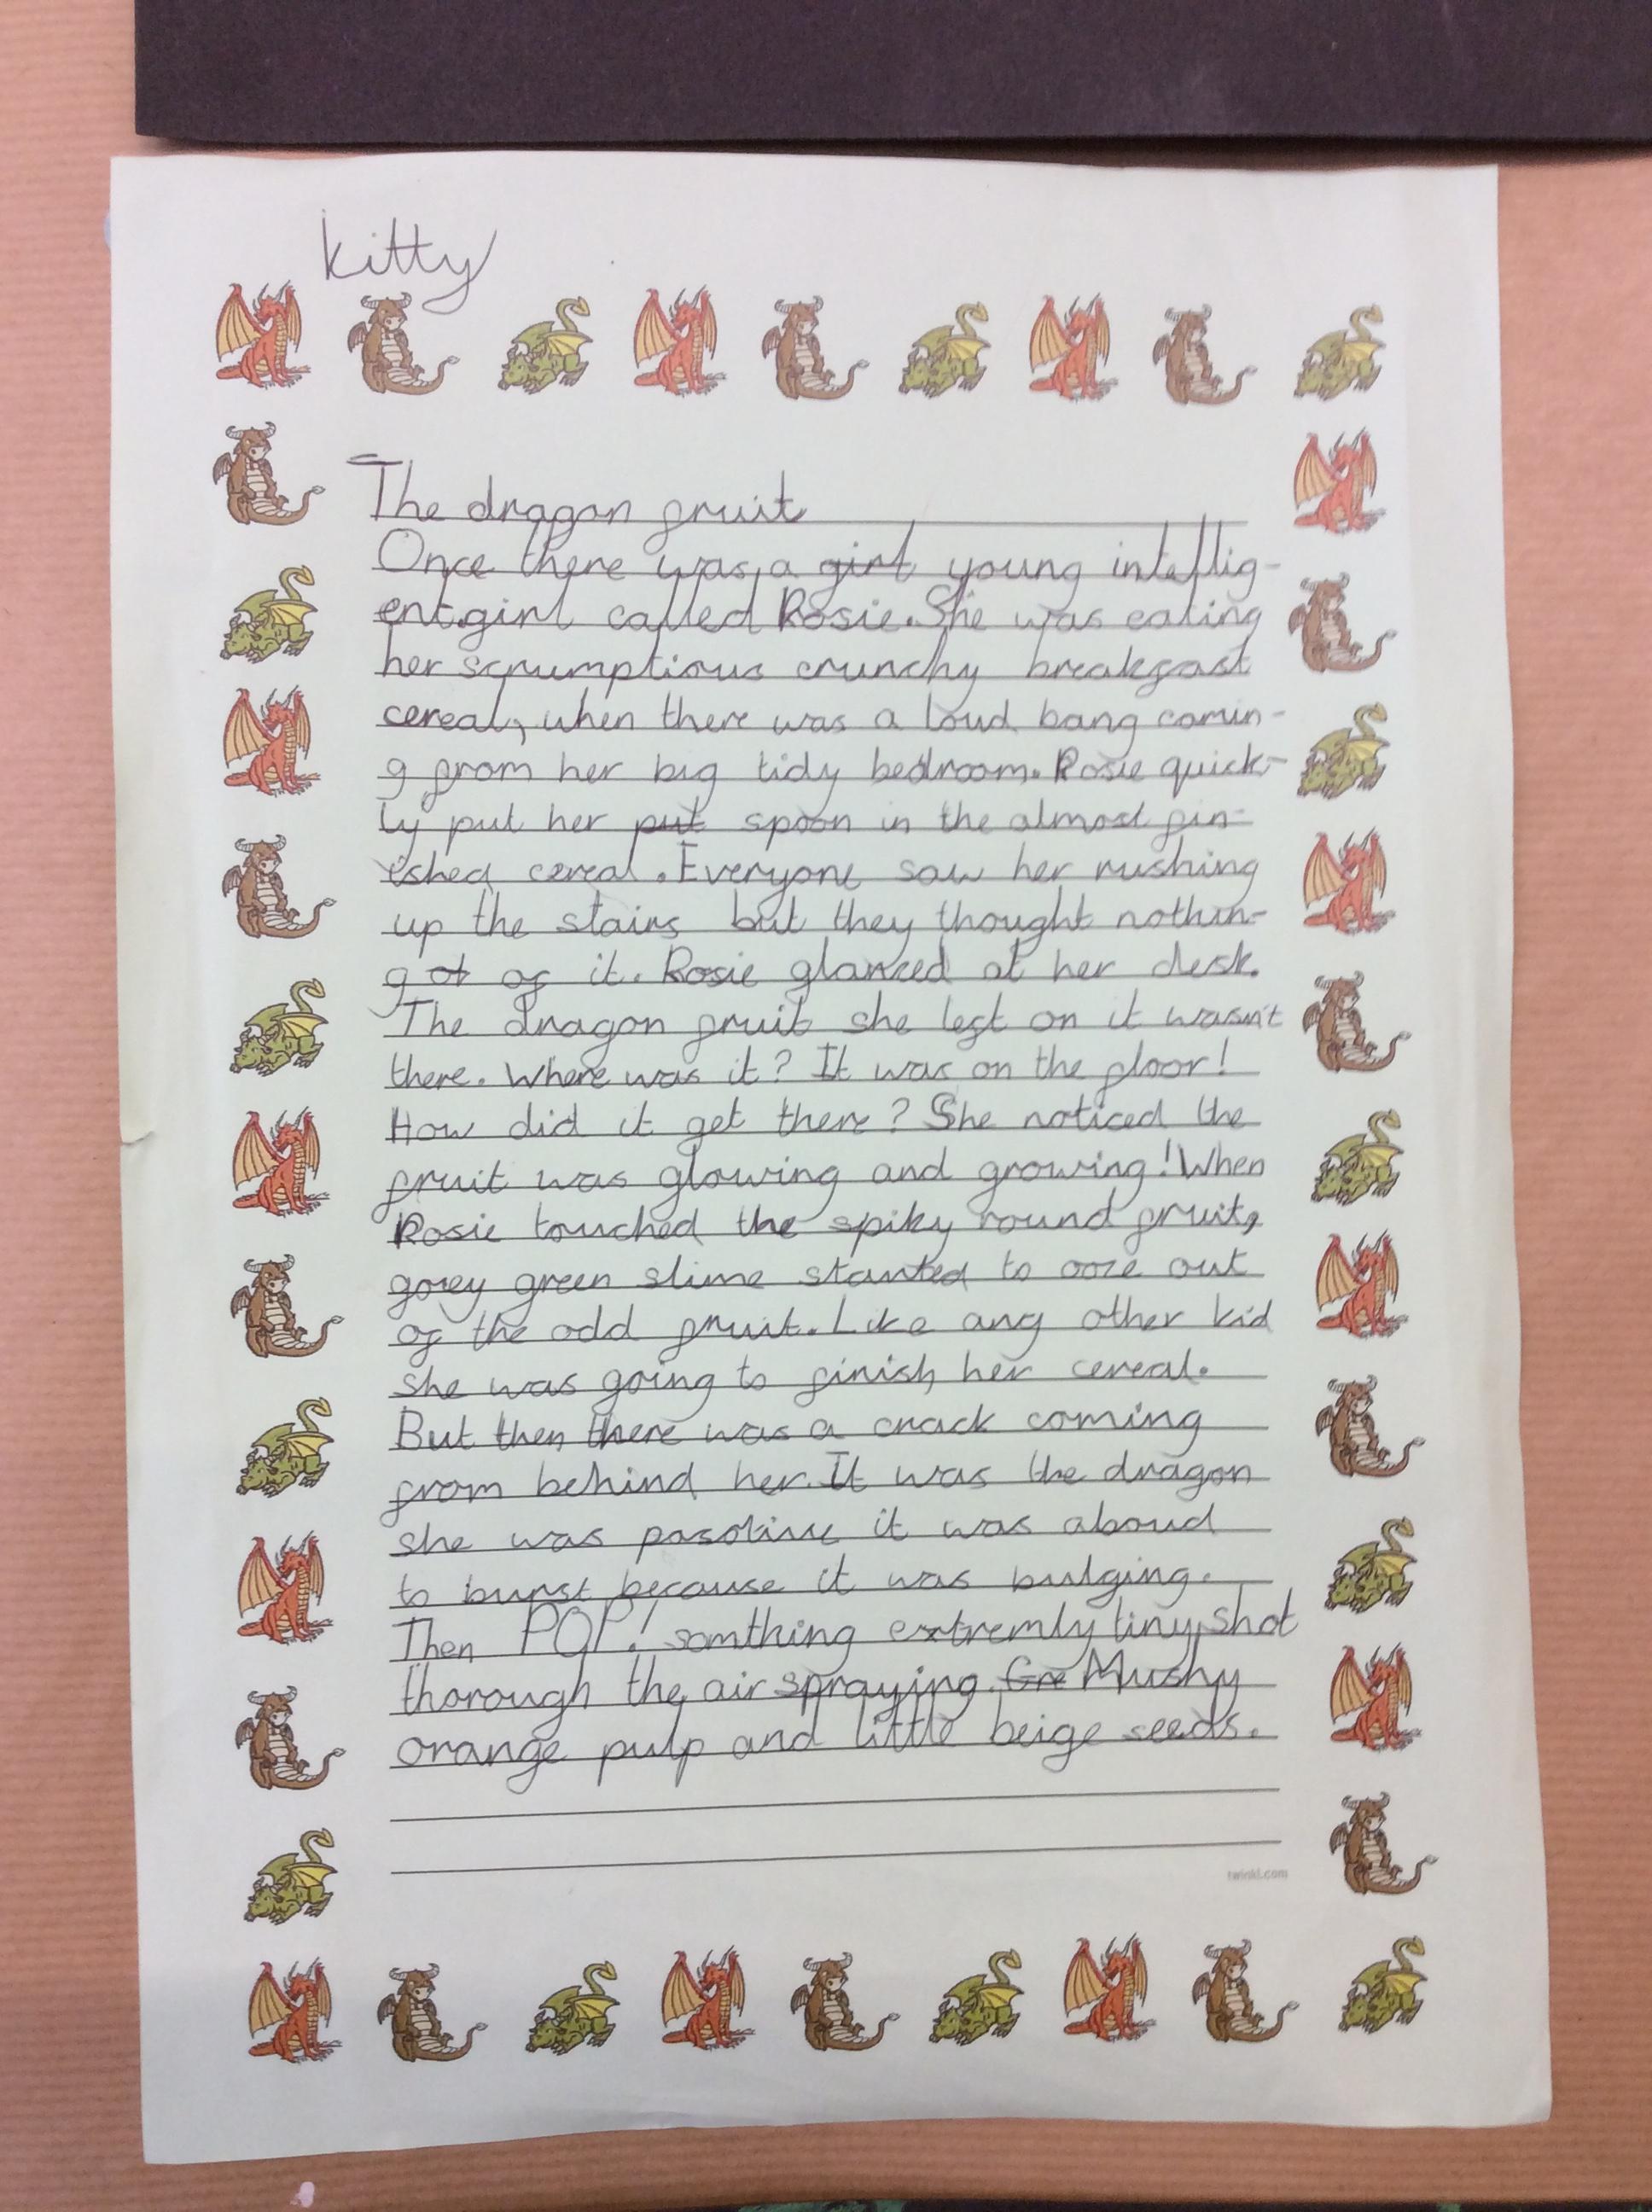 kitty
The dragon fruit
Once there was a girl young intellig-
ent girl called Rosie. She was eating
her scrumptious crunchy breakfast
cereal, when there was a loud bang comin-
g from her big tidy bedroom. Rosie quick-
ly put her put spoon in the almost fin-
ished cereal. Everyone saw her rushing
up the stairs but they thought nothin-
g ot of it. Rosie glanced at her desk.
The dragon fruit she left on it wasn't
there. Where was it? It was on the floor!
How did it get there? She noticed the
fruit was glowing and growing! When
Rosie touched the spiky round fruit,
gorey green slime started to ooze out
of the odd fruit. Like any other kid
she was going to finish her cereal.
But then there was a crack coming
from behind her. It was the dragon
she was it was aboud
to burst because it was bulging.
Then POP! somthing extremly tiny, shot
thorough the air spraying. Gre Mushy
orange pulp and little beige seeds.
twinkl.com